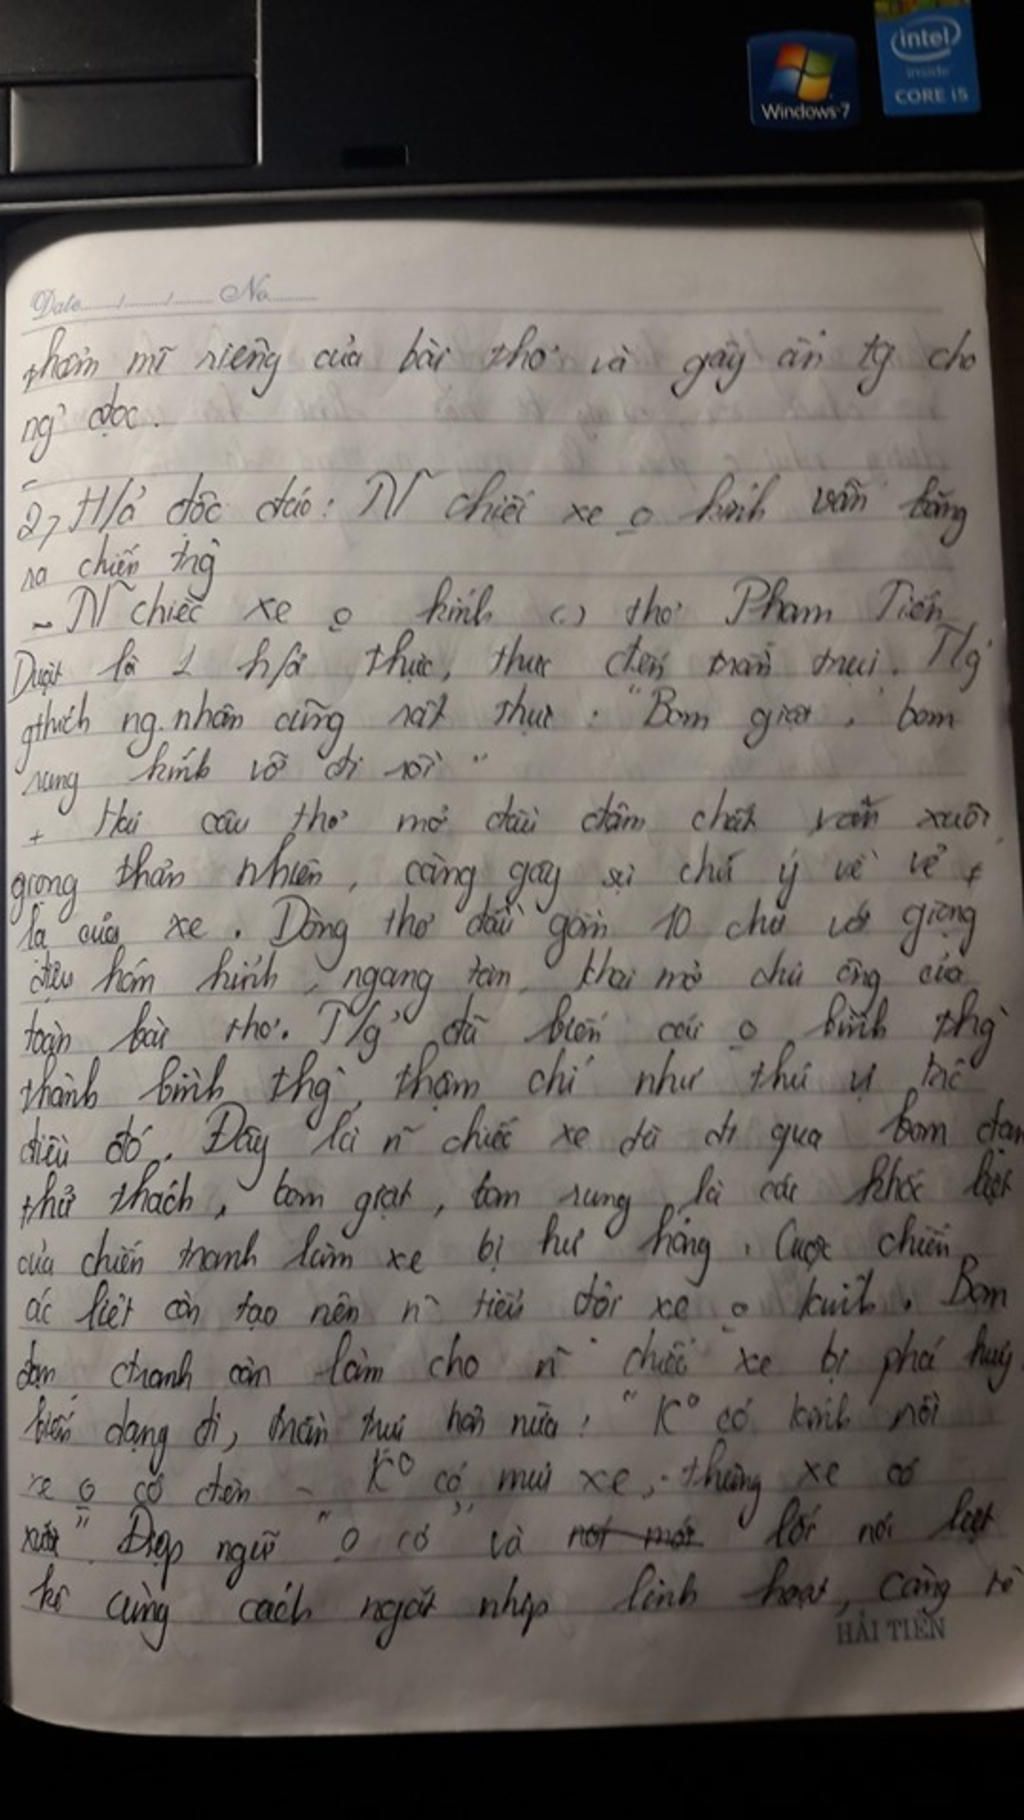 intel
inside
CORE i5
Windows 7
Date ....../....../...... No..........
thẩm mĩ riêng của bài thơ và gây ấn tg cho
ng' đọc.
2, H/ả độc đáo: N~ chiếc xe o kính vẫn băng
ra chiến trg`
- N~ chiếc xe o kính () thơ Phạm Tiến
Duật là 1 h/ả thực, thực đến trần trụi. T/g'
gthích ng. nhân cũng rất thực: "Bom giật, bom
rung kính vỡ đi rồi"
+ Hai câu thơ mở đầu đậm chất văn xuôi,
giọng thản nhiên, càng gây sự chú ý về vẻ
lạ của xe. Dòng thơ đầu gồm 10 chữ với giọng
điệu hóm hỉnh, ngang tàn, khai mở chủ của
toàn bài thơ. T/g' đã biến cái o bình thg`
thành bình thg`, thậm chí như thú vị trc
điều đó. Đây là n~ chiếc xe đã đi qua bom đạn
thử thách, bom giật, bom rung, là cái khốc liệt
của chiến tranh làm xe bị hư hỏng. Cuộc chiến
ác liệt còn tạo nên n~ tiểu đội xe o kính. Bom
đạn ctranh còn làm cho n~ chiếc xe bị phá huỷ
biến dạng đi, trần trụi hơn nữa: "K° có kính rồi
xe o có đèn - K° có mui xe, thùng xe có
xước" Điệp ngữ "o có" và nét mới lối nói liệt
kê cùng cách ngắt nhịp linh hoạt, càng
HẢI TIẾN